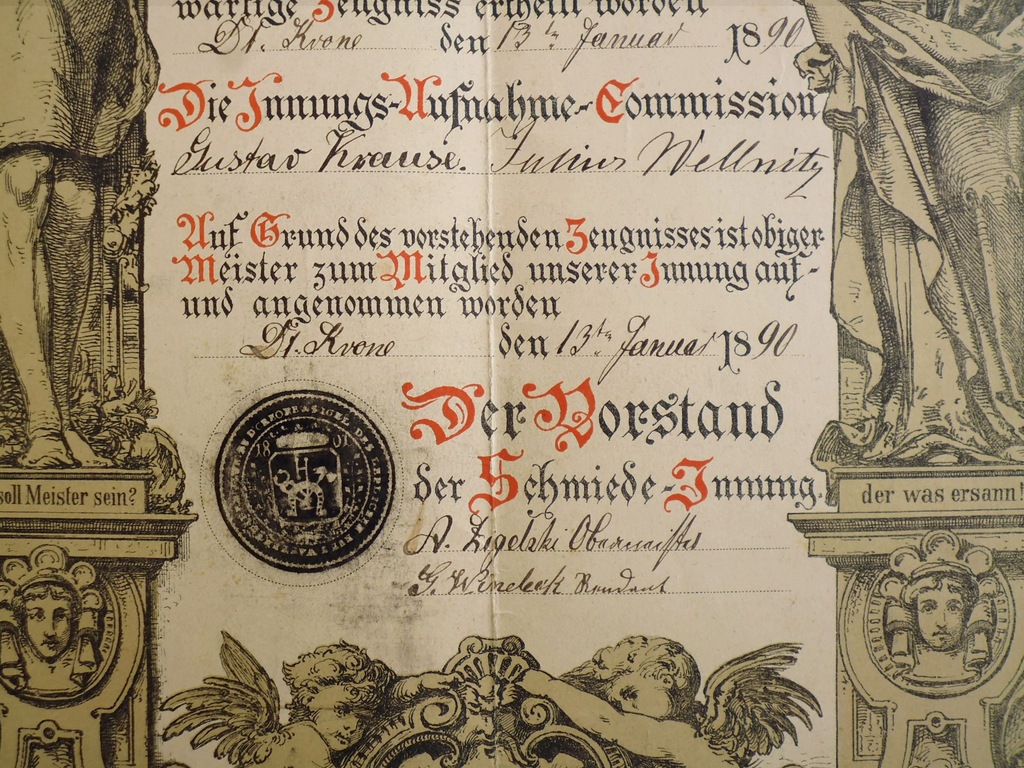 wärtige Zeugniss ertheilt worden
Dt. Krone den 13ten Januar 1890
Die Innungs-Aufnahme-Commission
Gustav Krause. Julius Wellnitz
Auf Grund des vorstehenden Zeugnisses ist obiger
Meister zum Mitglied unserer Innung auf-
und angenommen worden
Dt. Krone den 13ten Januar 1890
Der Vorstand
der Schmiede-Innung.
soll Meister sein?
der was ersann!
A. Obermeister
G. Rendant